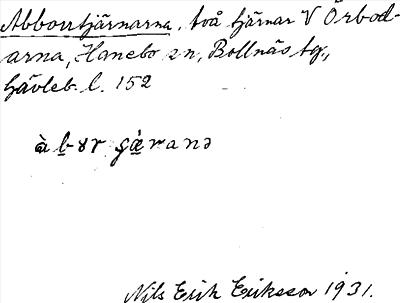 Abborrtjärnarna, två tjärnar V Örbod-
arna, Hanebo sn, Bollnäs tg,
Gävleb. l. 152
àbɤr ɕæ̀rana
Nils Erik Eriksson 1931.